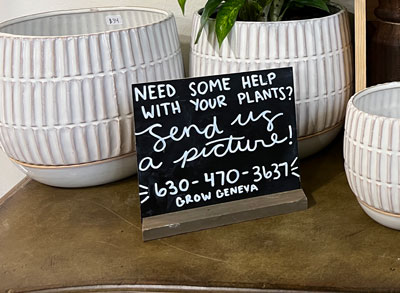 $34
NEED SOME HELP
WITH YOUR PLANTS?
Send us
a picture!
630-470-3637
GROW GENEVA